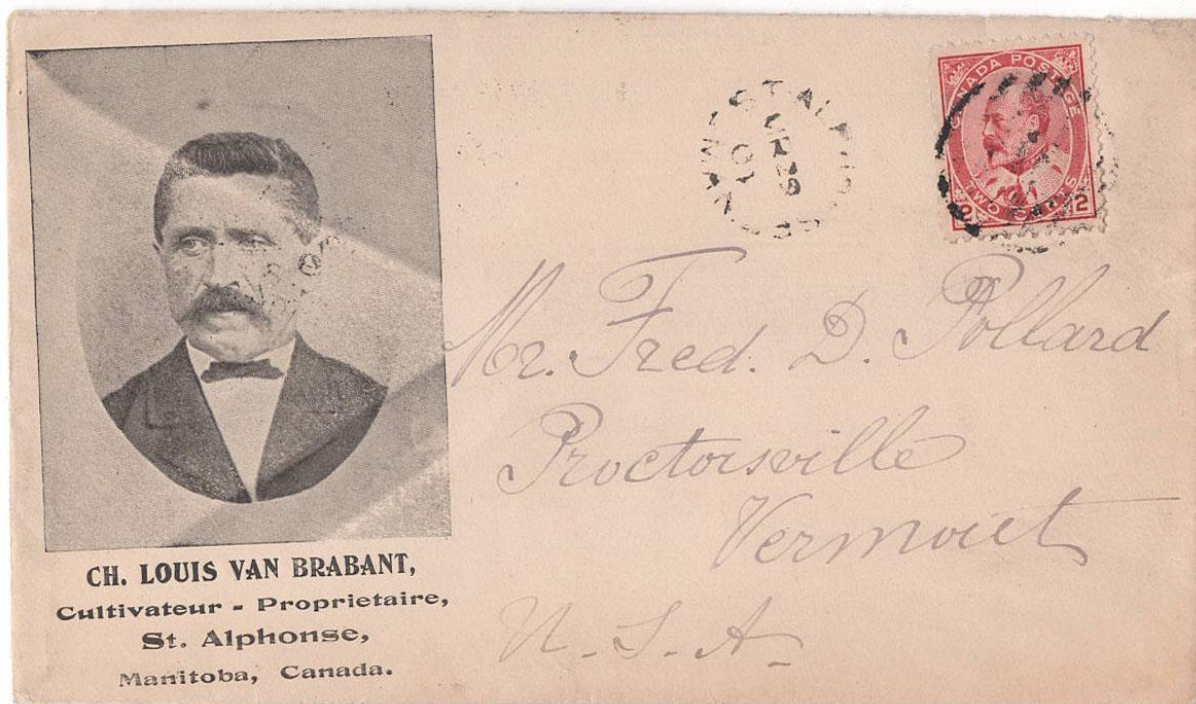 CANADA POSTAGE
TWO CENTS
2 2
Mr. Fred. D. Pollard
Proctorsville
Vermont
U. S. A.
CH. LOUIS VAN BRABANT,
Cultivateur - Proprietaire,
St. Alphonse,
Manitoba, Canada.